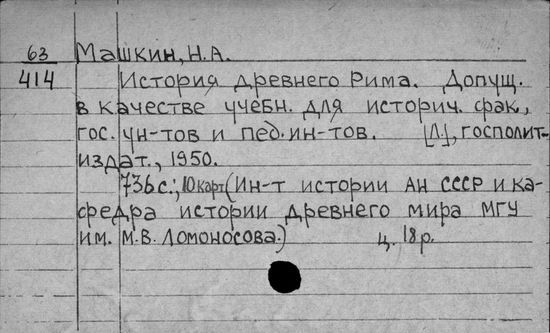 63 Машкин, Н.А.
414 История древнего Рима. Допущ.
в качестве учебн. для историч. фак,
гос. ун-тов и пед. ин-тов. [Л], госполит-
издат., 1950.
736 с.; 10 карт (Ин-т истории АН СССР и ка-
федра истории древнего мира МГУ
им. М.В. Ломоносова.) ц. 18 р.